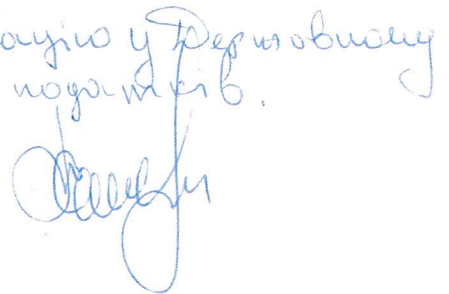 ацію у Державному
податків.